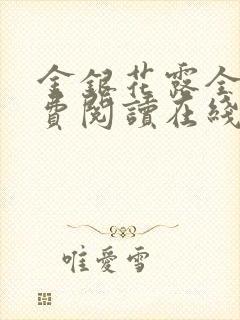 金銀花露全
費閱讀在綫
唯愛雪